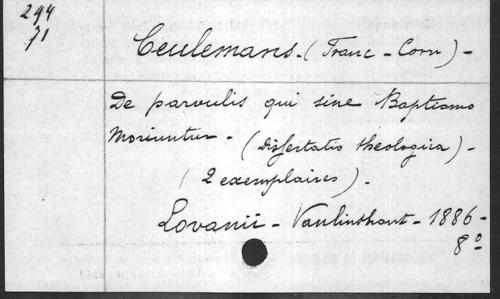 294
71
Ceulemans - (Franc - Corn) -
De parvulis qui sine Baptismo
Moriuntur - (Dissertatio theologica) -
(2 exemplaires) -
Lovanii - Vanlinthout - 1886 -
8º